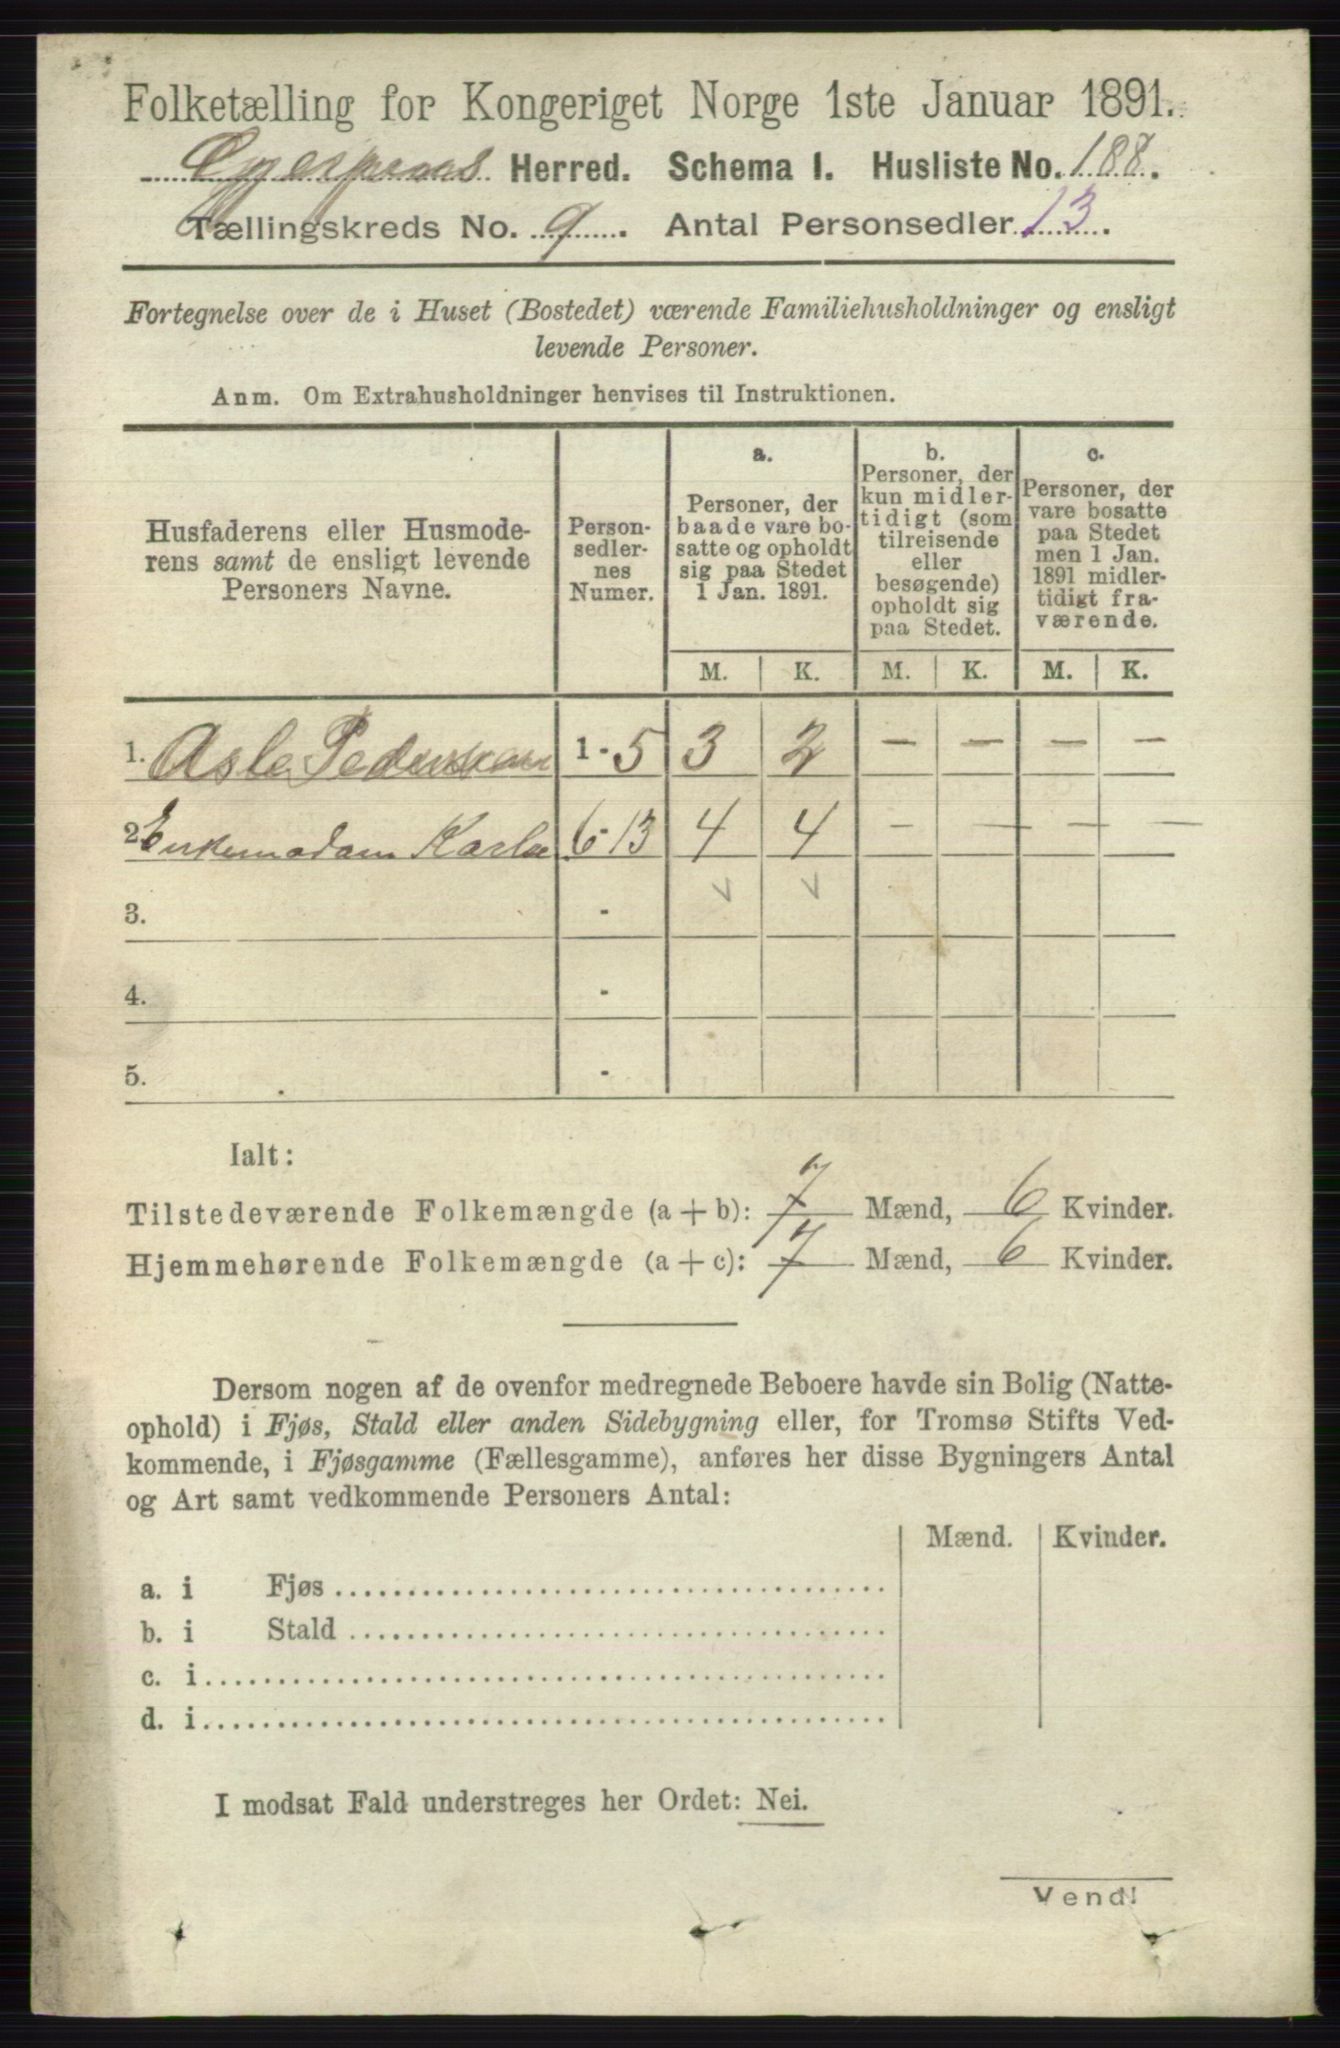 Folketælling for Kongeriget Norge 1ste Januar 1891.
Gjerpens Herred. Schema I. Husliste No. 188.
Tællingskreds No. 9. Antal Personsedler 13.
Fortegnelse over de i Huset (Bostedet) værende Familiehusholdninger og ensligt
levende Personer.
Anm. Om Extrahusholdninger henvises til Instruktionen.
Husfaderens eller Husmode-
rens samt de ensligt levende
Personers Navne.
Person-
sedler-
nes
Numer.
a.
Personer, der
baade vare bo-
satte og opholdt
sig paa Stedet
1 Jan. 1891.
b.
Personer, der
kun midler-
tidigt (som
tilreisende
eller
besøgende)
opholdt sig
paa Stedet.
c.
Personer, der
vare bosatte
paa Stedet
men 1 Jan.
1891 midler-
tidigt fra-
værende.
M. K. M. K. M. K.
1. Asle Pedersen 1-5 3 2 — — — —
2. Enkemadam Karla 6-13 4 4 — — — —
3. -
4. -
5. -
Ialt:
Tilstedeværende Folkemængde (a + b): 7 Mænd, 6 Kvinder.
Hjemmehørende Folkemængde (a + c): 7 Mænd, 6 Kvinder.
Dersom nogen af de ovenfor medregnede Beboere havde sin Bolig (Natte-
ophold) i Fjøs, Stald eller anden Sidebygning eller, for Tromsø Stifts Ved-
kommende, i Fjøsgamme (Fællesgamme), anføres her disse Bygningers Antal
og Art samt vedkommende Personers Antal:
Mænd. Kvinder.
a. i Fjøs
b. i Stald
c. i
d. i
I modsat Fald understreges her Ordet: Nei.
Vend!